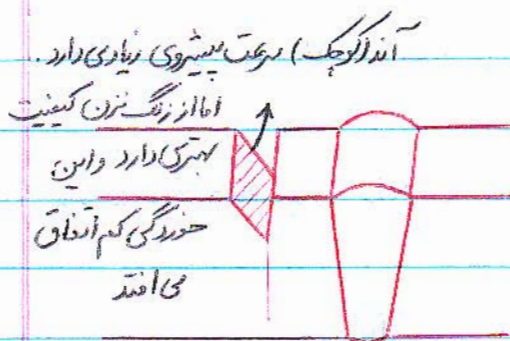 آند (کوچک) سرعت پیشروی زیادی دارد.
اما از زنگ نزن کیفیت
بهتری دارد و این
خوردگی کم اتفاق
می افتد